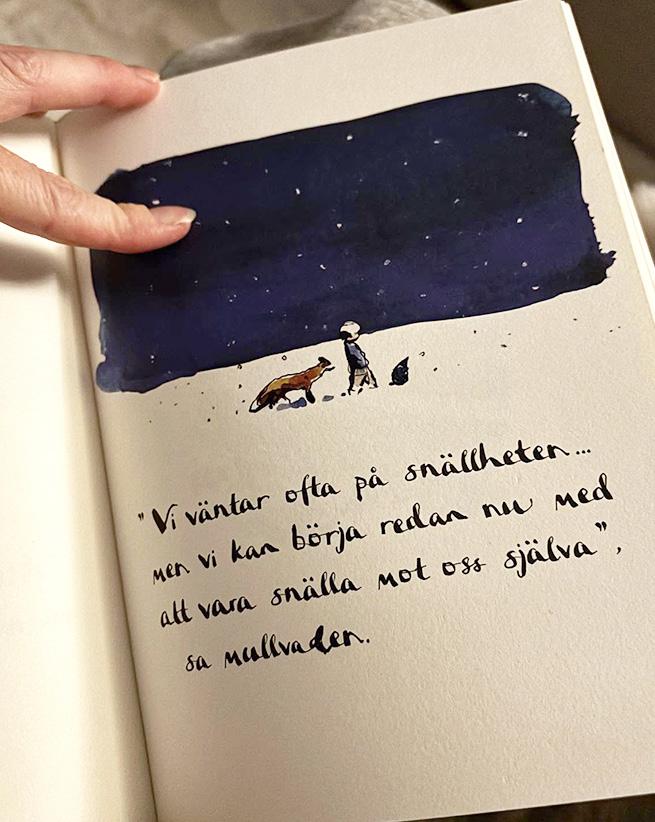 "Vi väntar ofta på snällheten...
men vi kan börja redan nu med
att vara snälla mot oss själva",
sa mullvaden.